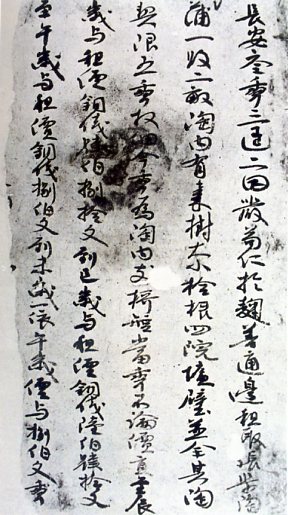 長安叁𠡦三𠥱二𡆠嚴苟仁於麴善通邊租取張渠陶
蒲一段二畝陶內有棗樹大小拾根四院墻壁並全其陶
契限五𠡦收佃今𠡦為陶內支棹短當𠡦不論價直至辰
歲与租價銅錢肆伯捌拾文到巳歲与租價銅錢陸伯肆拾文
至午歲与租價銅錢捌伯文到未歲一依午歲價与捌伯文𠡦